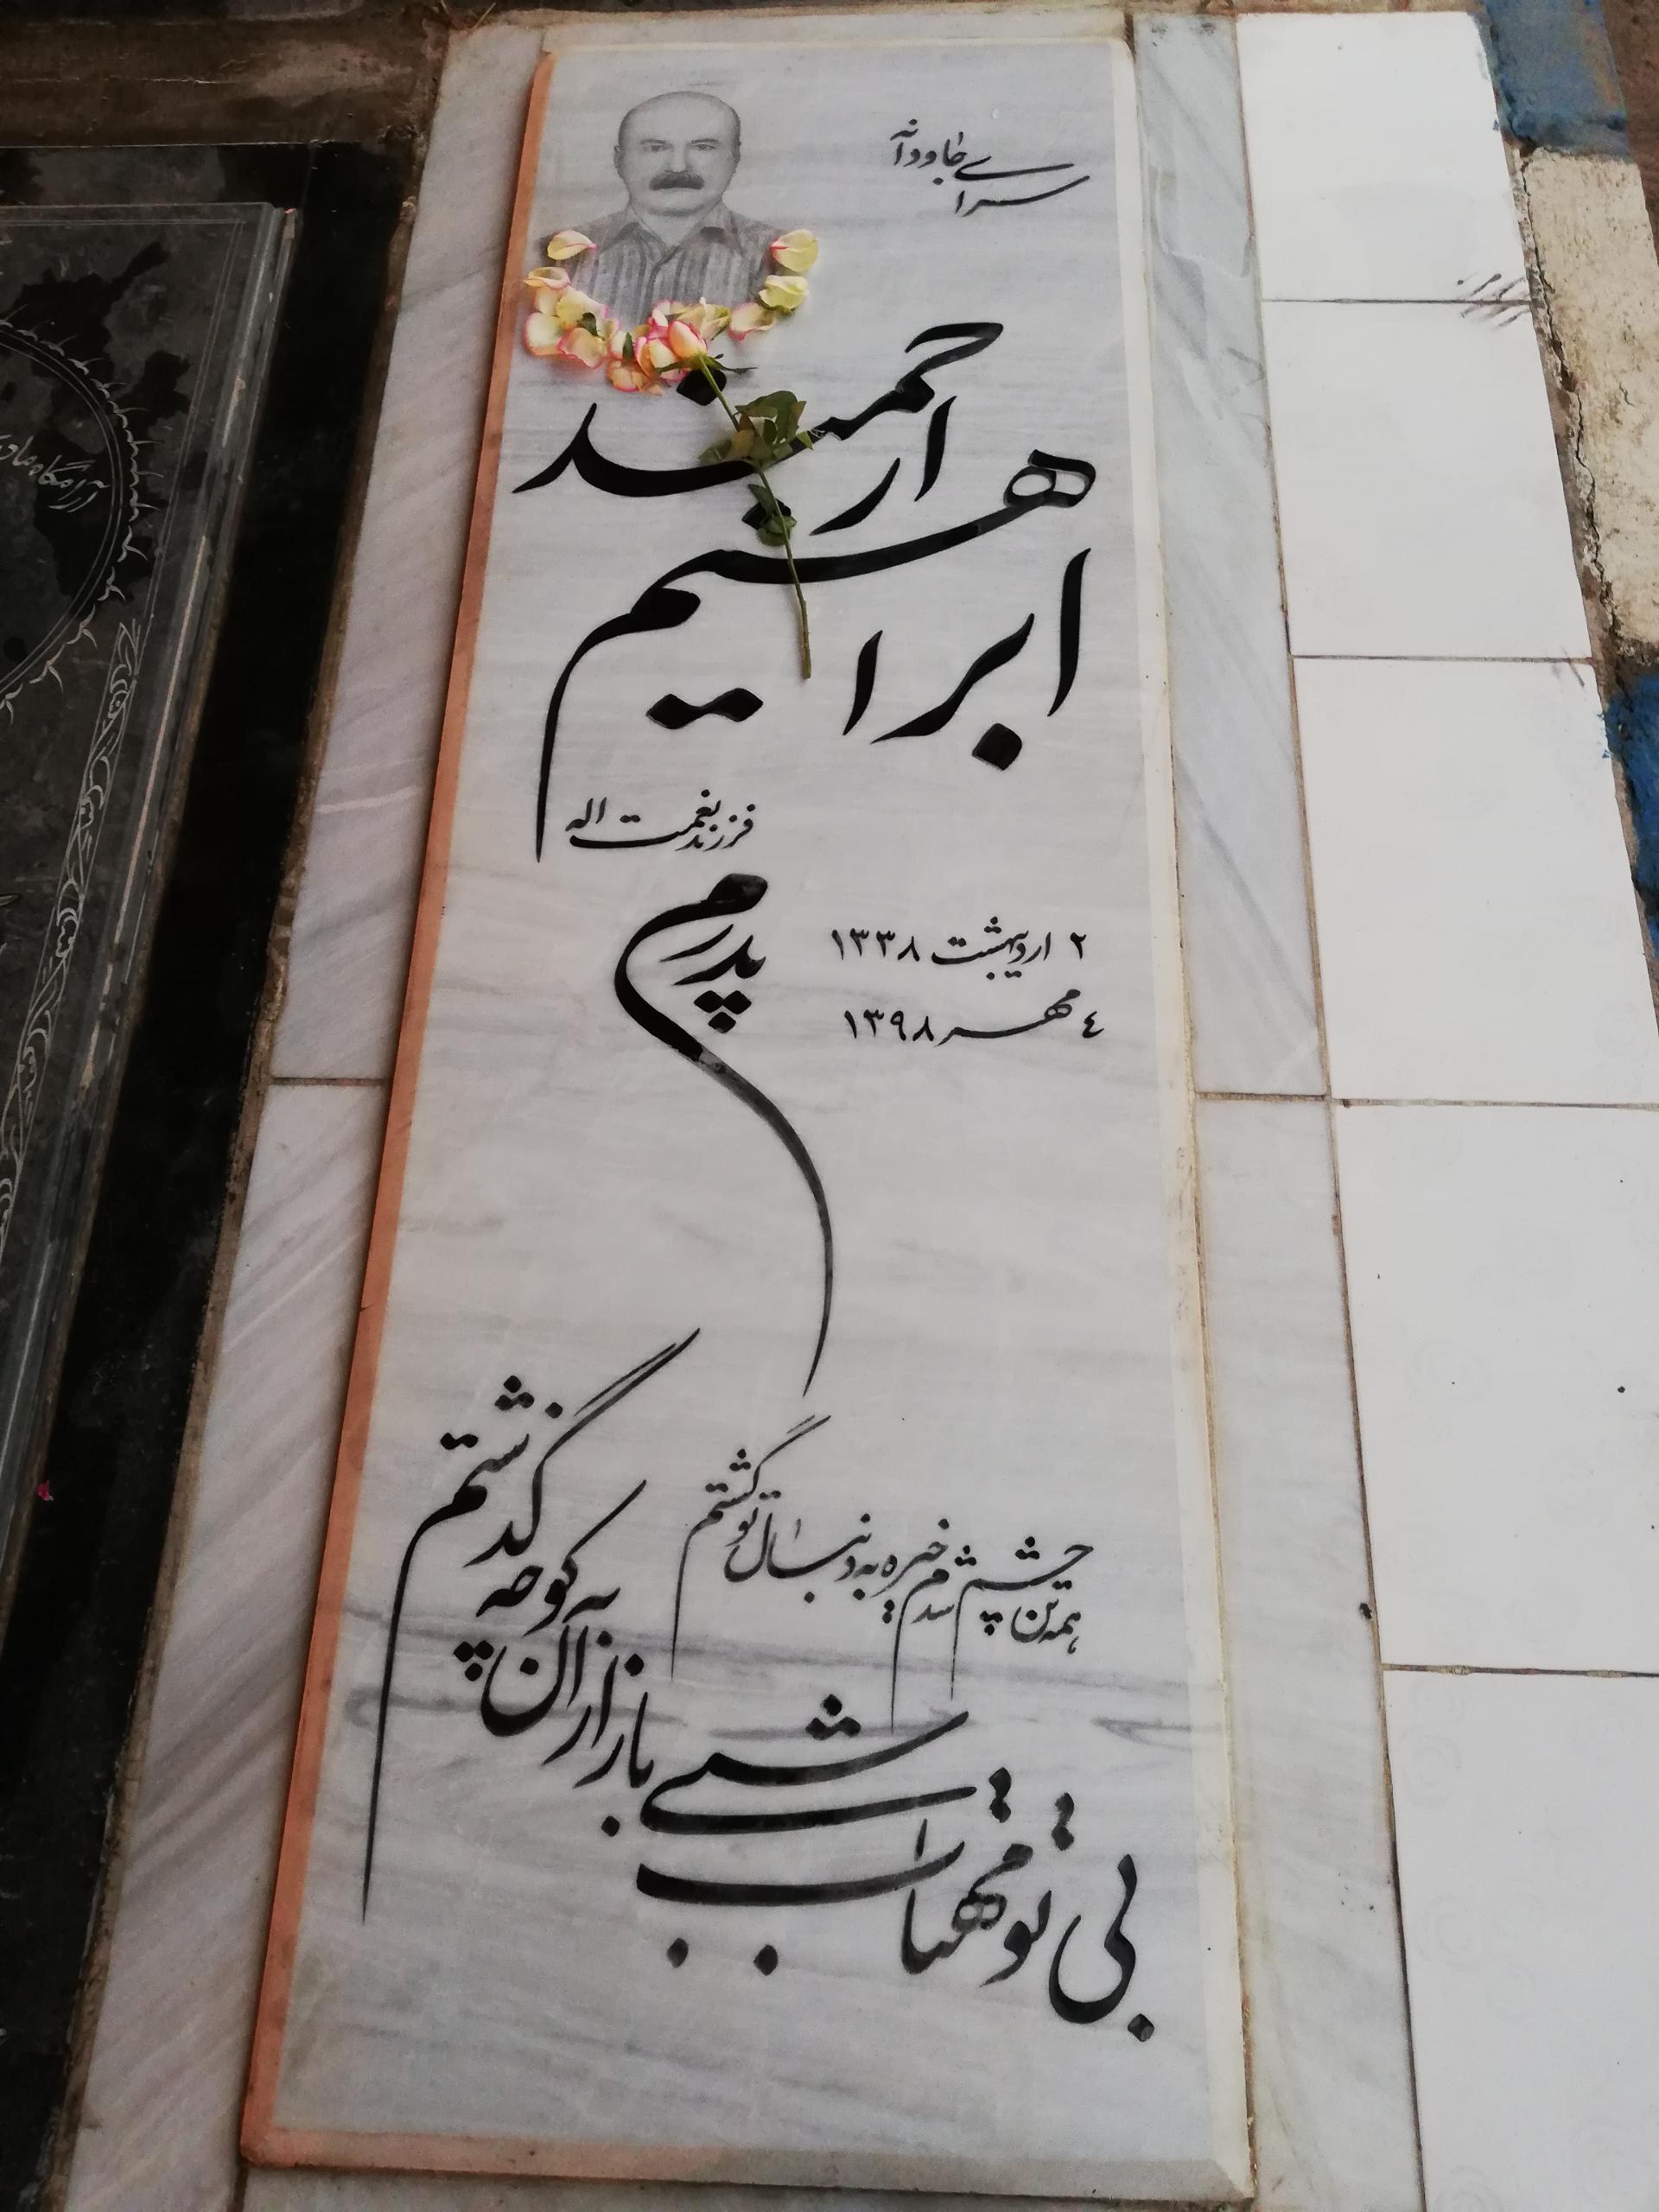 سرای جاودانه
ابراهیم ارجمند
فرزند نعمت اله
۲ اردیبهشت ۱۳۳۸
٤ مهر ۱۳۹۸
پدرم
بی تو مهتاب شبی باز از آن کوچه گذشتم
همه تن چشم شدم خیره به دنبال تو گشتم